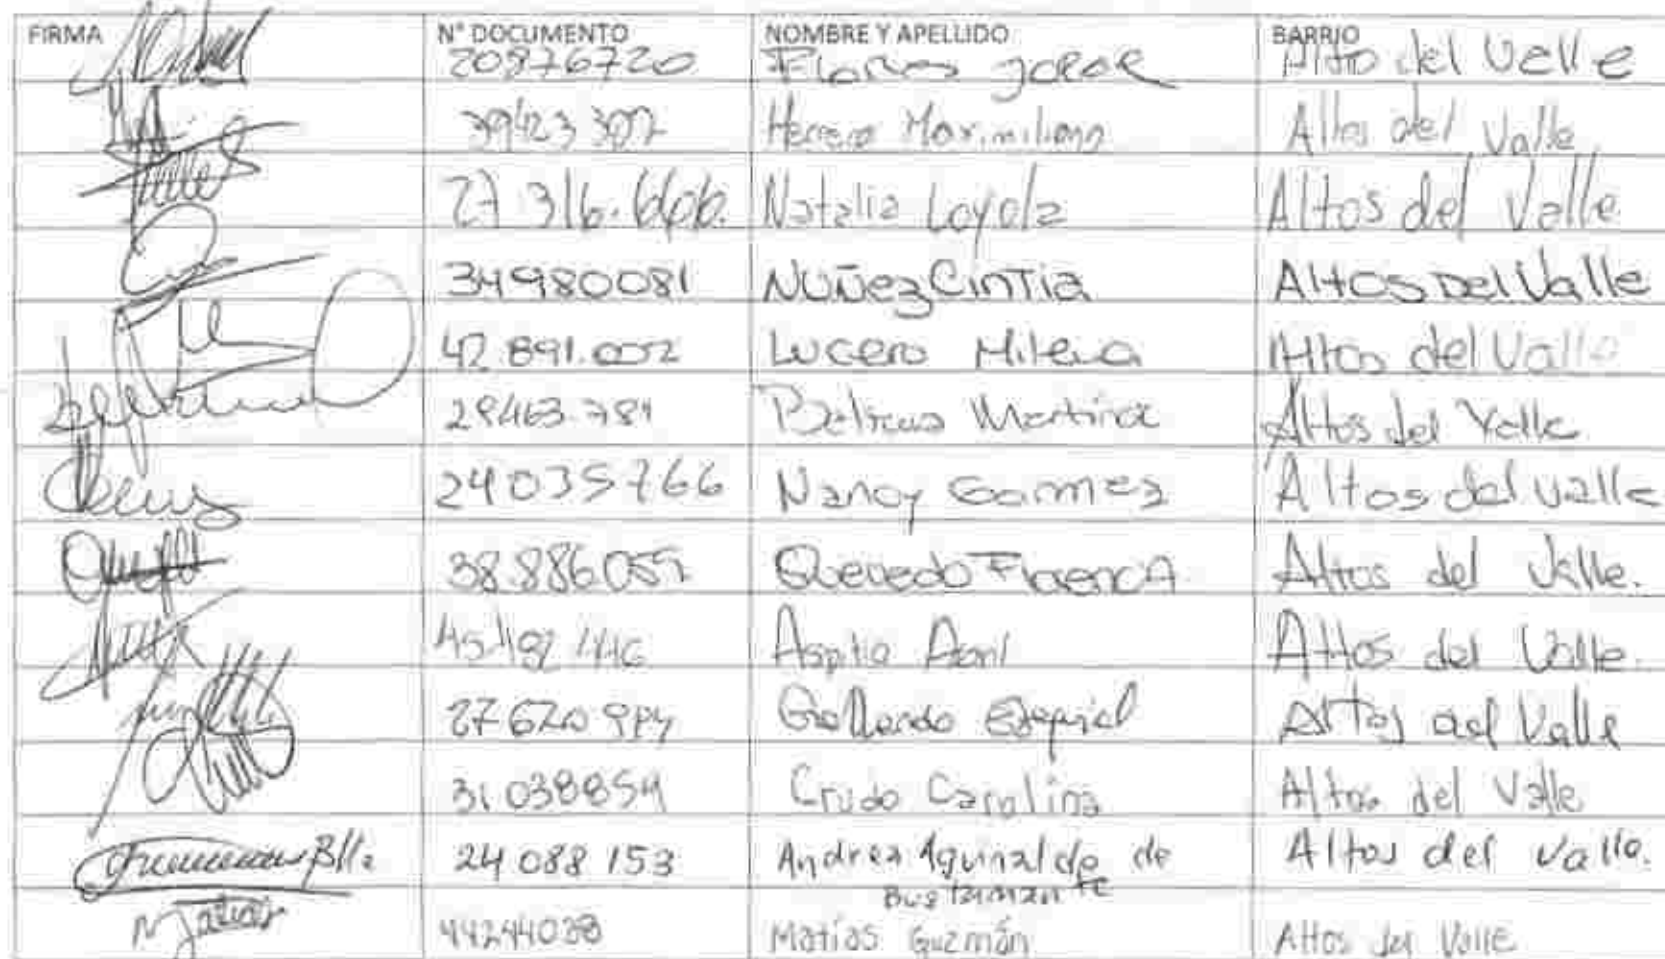 FIRMA N° DOCUMENTO NOMBRE Y APELLIDO BARRIO
20976720 Flores Jorge Alto del Valle
39423307 Herrera Maximiliano Altos del Valle
27 316.606. Natalia Loyola Altos del Valle
34980081 NUÑez CinTia Altos Del Valle
42.891.002 Lucero Milena Altos del Valle
29463.781 Martina Altos del Valle
24035766 Nancy Gomez Altos del valle
38.886.055 Quevedo Florencia Altos del Valle.
Abril Altos del Valle.
27620984 Gallardo Ezequiel Altos del Valle
31.038854 Crudo Carolina Altos del Valle
24 088 153 Andrea Aguinalde de Altos del Valle.
Bustamante
Matias 44244038 Matías Guzmán Altos del Valle